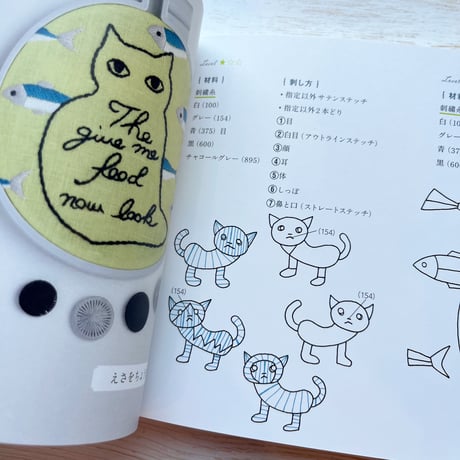 The
give me
feed
now look
えさをちょ
Level ★☆☆
{ 材料 }
刺繍糸
白 (100)
グレー (154)
青 (375) 目
黒 (600)
チャコールグレー (895)
{ 刺し方 }
・指定以外サテンステッチ
・指定以外2本どり
①目
②白目 (アウトラインステッチ)
③顔
④耳
⑤体
⑥しっぽ
⑦鼻と口 (ストレートステッチ)
(154)
(154)
(154)
Level
{ 材
刺繍糸
白 (
グレー
青 (
黒 (6